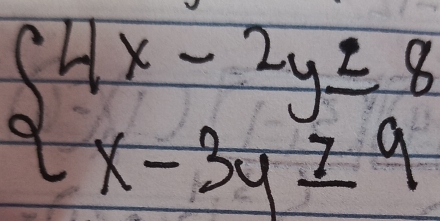 4x - 2y ≤ 8
x - 3y ≥ 9